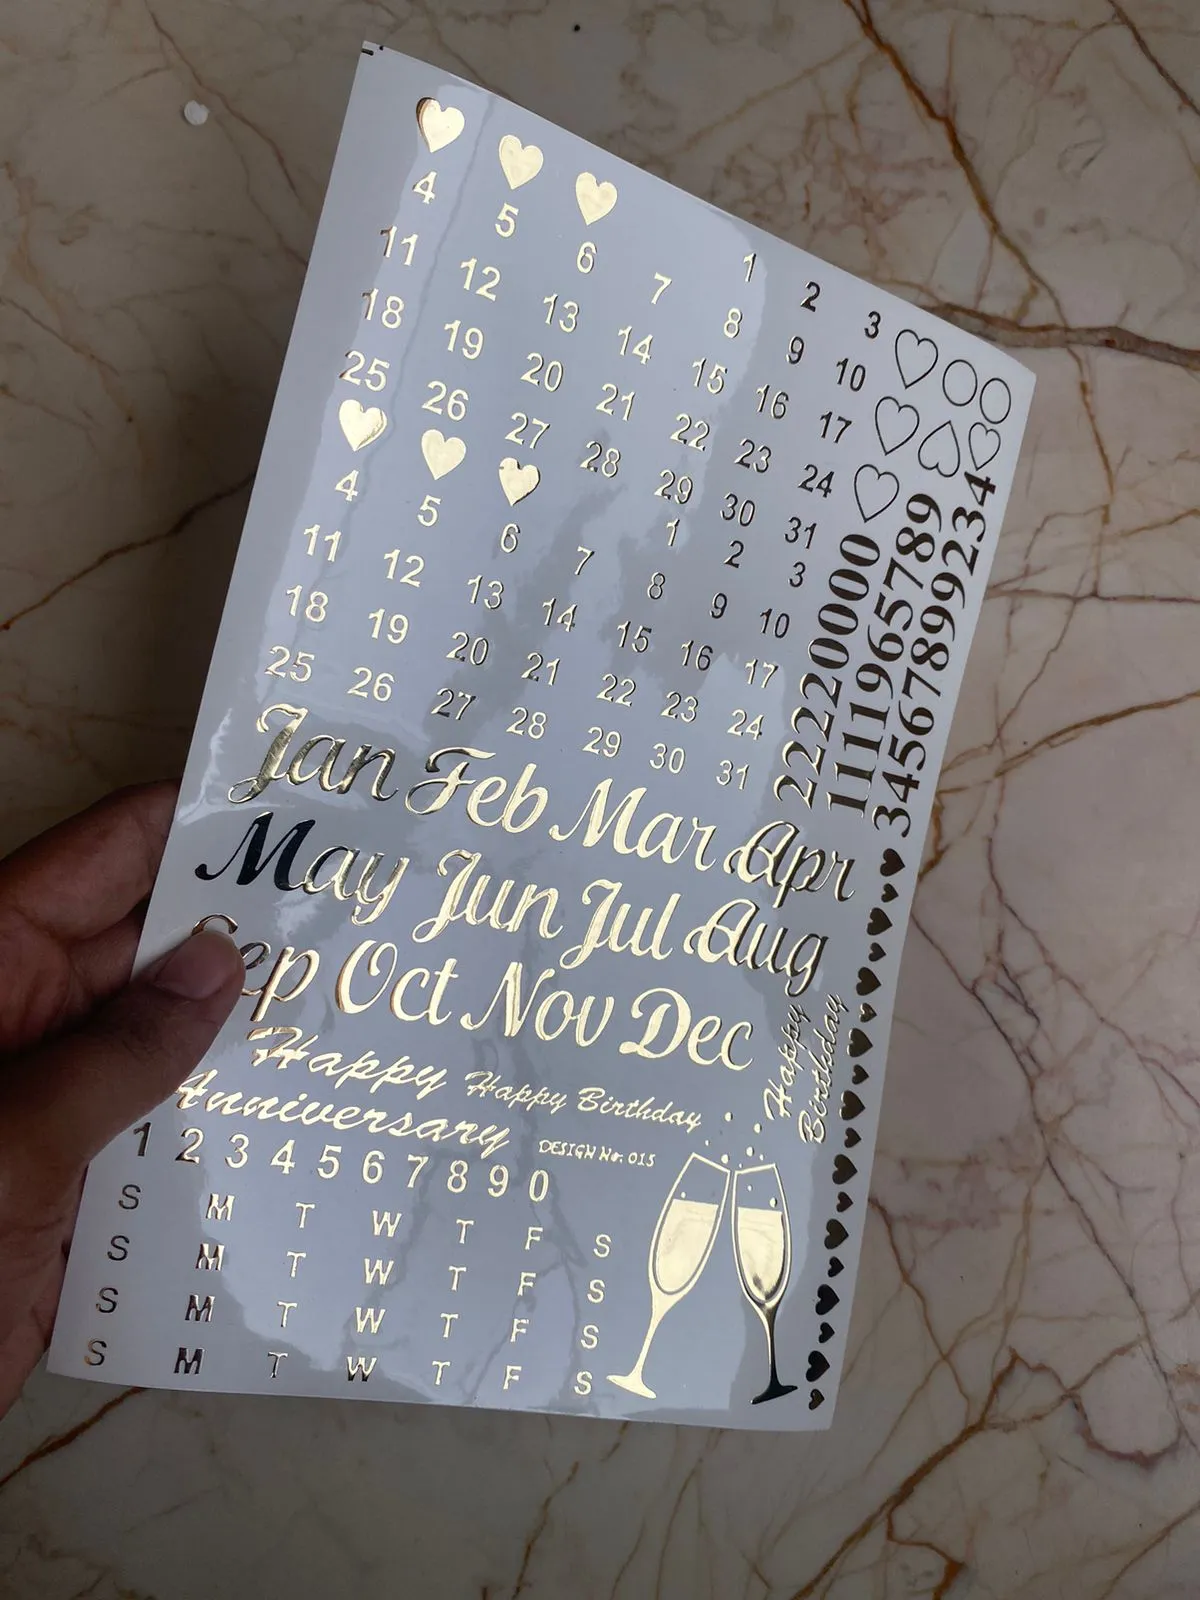 1 2 3
4 5 6 7 8 9 10
11 12 13 14 15 16 17
18 19 20 21 22 23 24
25 26 27 28 29 30 31
1 2 3
4 5 6 7 8 9 10
11 12 13 14 15 16 17
18 19 20 21 22 23 24
25 26 27 28 29 30 31
22220000
11119965789
34567899234
Jan Feb Mar Apr
May Jun Jul Aug
Sep Oct Nov Dec
Happy
Anniversary
Happy Birthday
Happy
Birthday
DESIGN No. 015
1 2 3 4 5 6 7 8 9 0
S M T W T F S
S M T W T F S
S M T W T F S
S M T W T F S